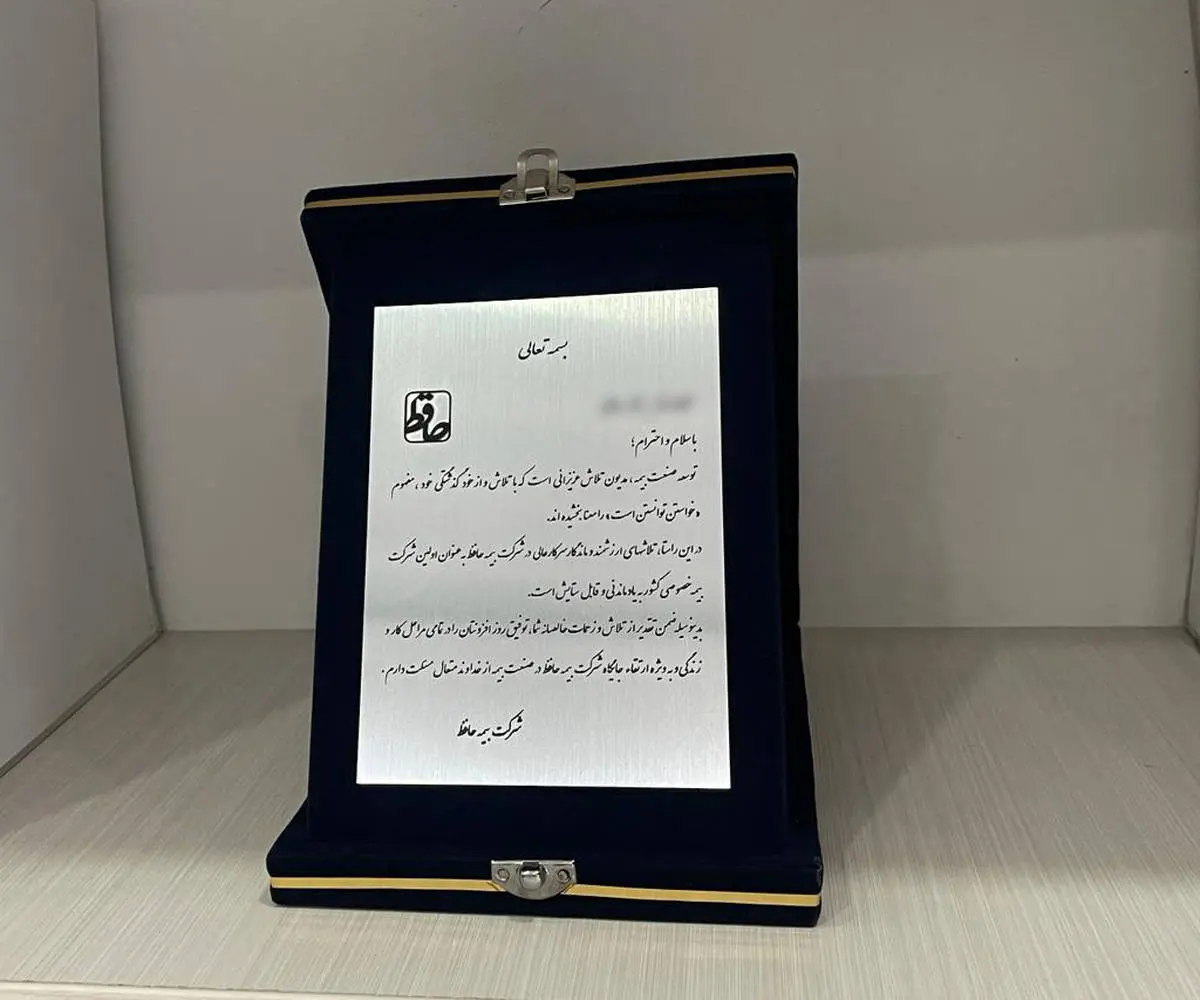 بسمه تعالی
حافظ
با سلام و احترام؛
توسعه صنعت بیمه، مدیون تلاش عزیزانی است که با تلاش و از خود گذشتگی خود، مفهوم
«خواستن توانستن است» را معنا بخشیده اند.
در این راستا، تلاشهای ارزشمند و ماندگار سرکار عالی در شرکت بیمه حافظ به عنوان اولین شرکت
بیمه خصوصی کشور به یاد ماندنی و قابل ستایش است.
بدینوسیله ضمن تقدیر از تلاش و زحمات خالصانه شما، توفیق روز افزونتان را در تمامی مراحل کار و
زندگی و به ویژه ارتقاء جایگاه شرکت بیمه حافظ در صنعت بیمه از خداوند متعال مسئلت دارم.
شرکت بیمه حافظ